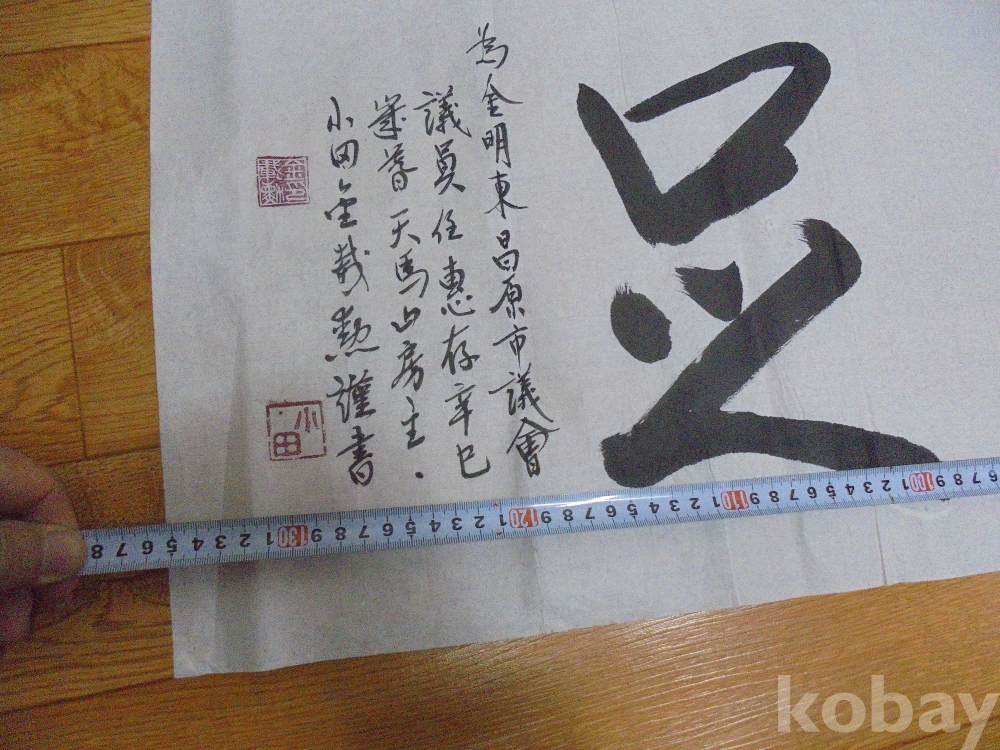 足
為金明東昌原市議會
議員任惠存辛巳
歲暮天馬山房主
小田金
謹書
小田
6 7 8 9 100 1 2 3 4 5 6 7 8 9 110 1 2 3 4 5 6 7 8 9 120 1 2 3 4 5 6 7 8 9 130 1 2 3 4 5 6 7 8
kobay